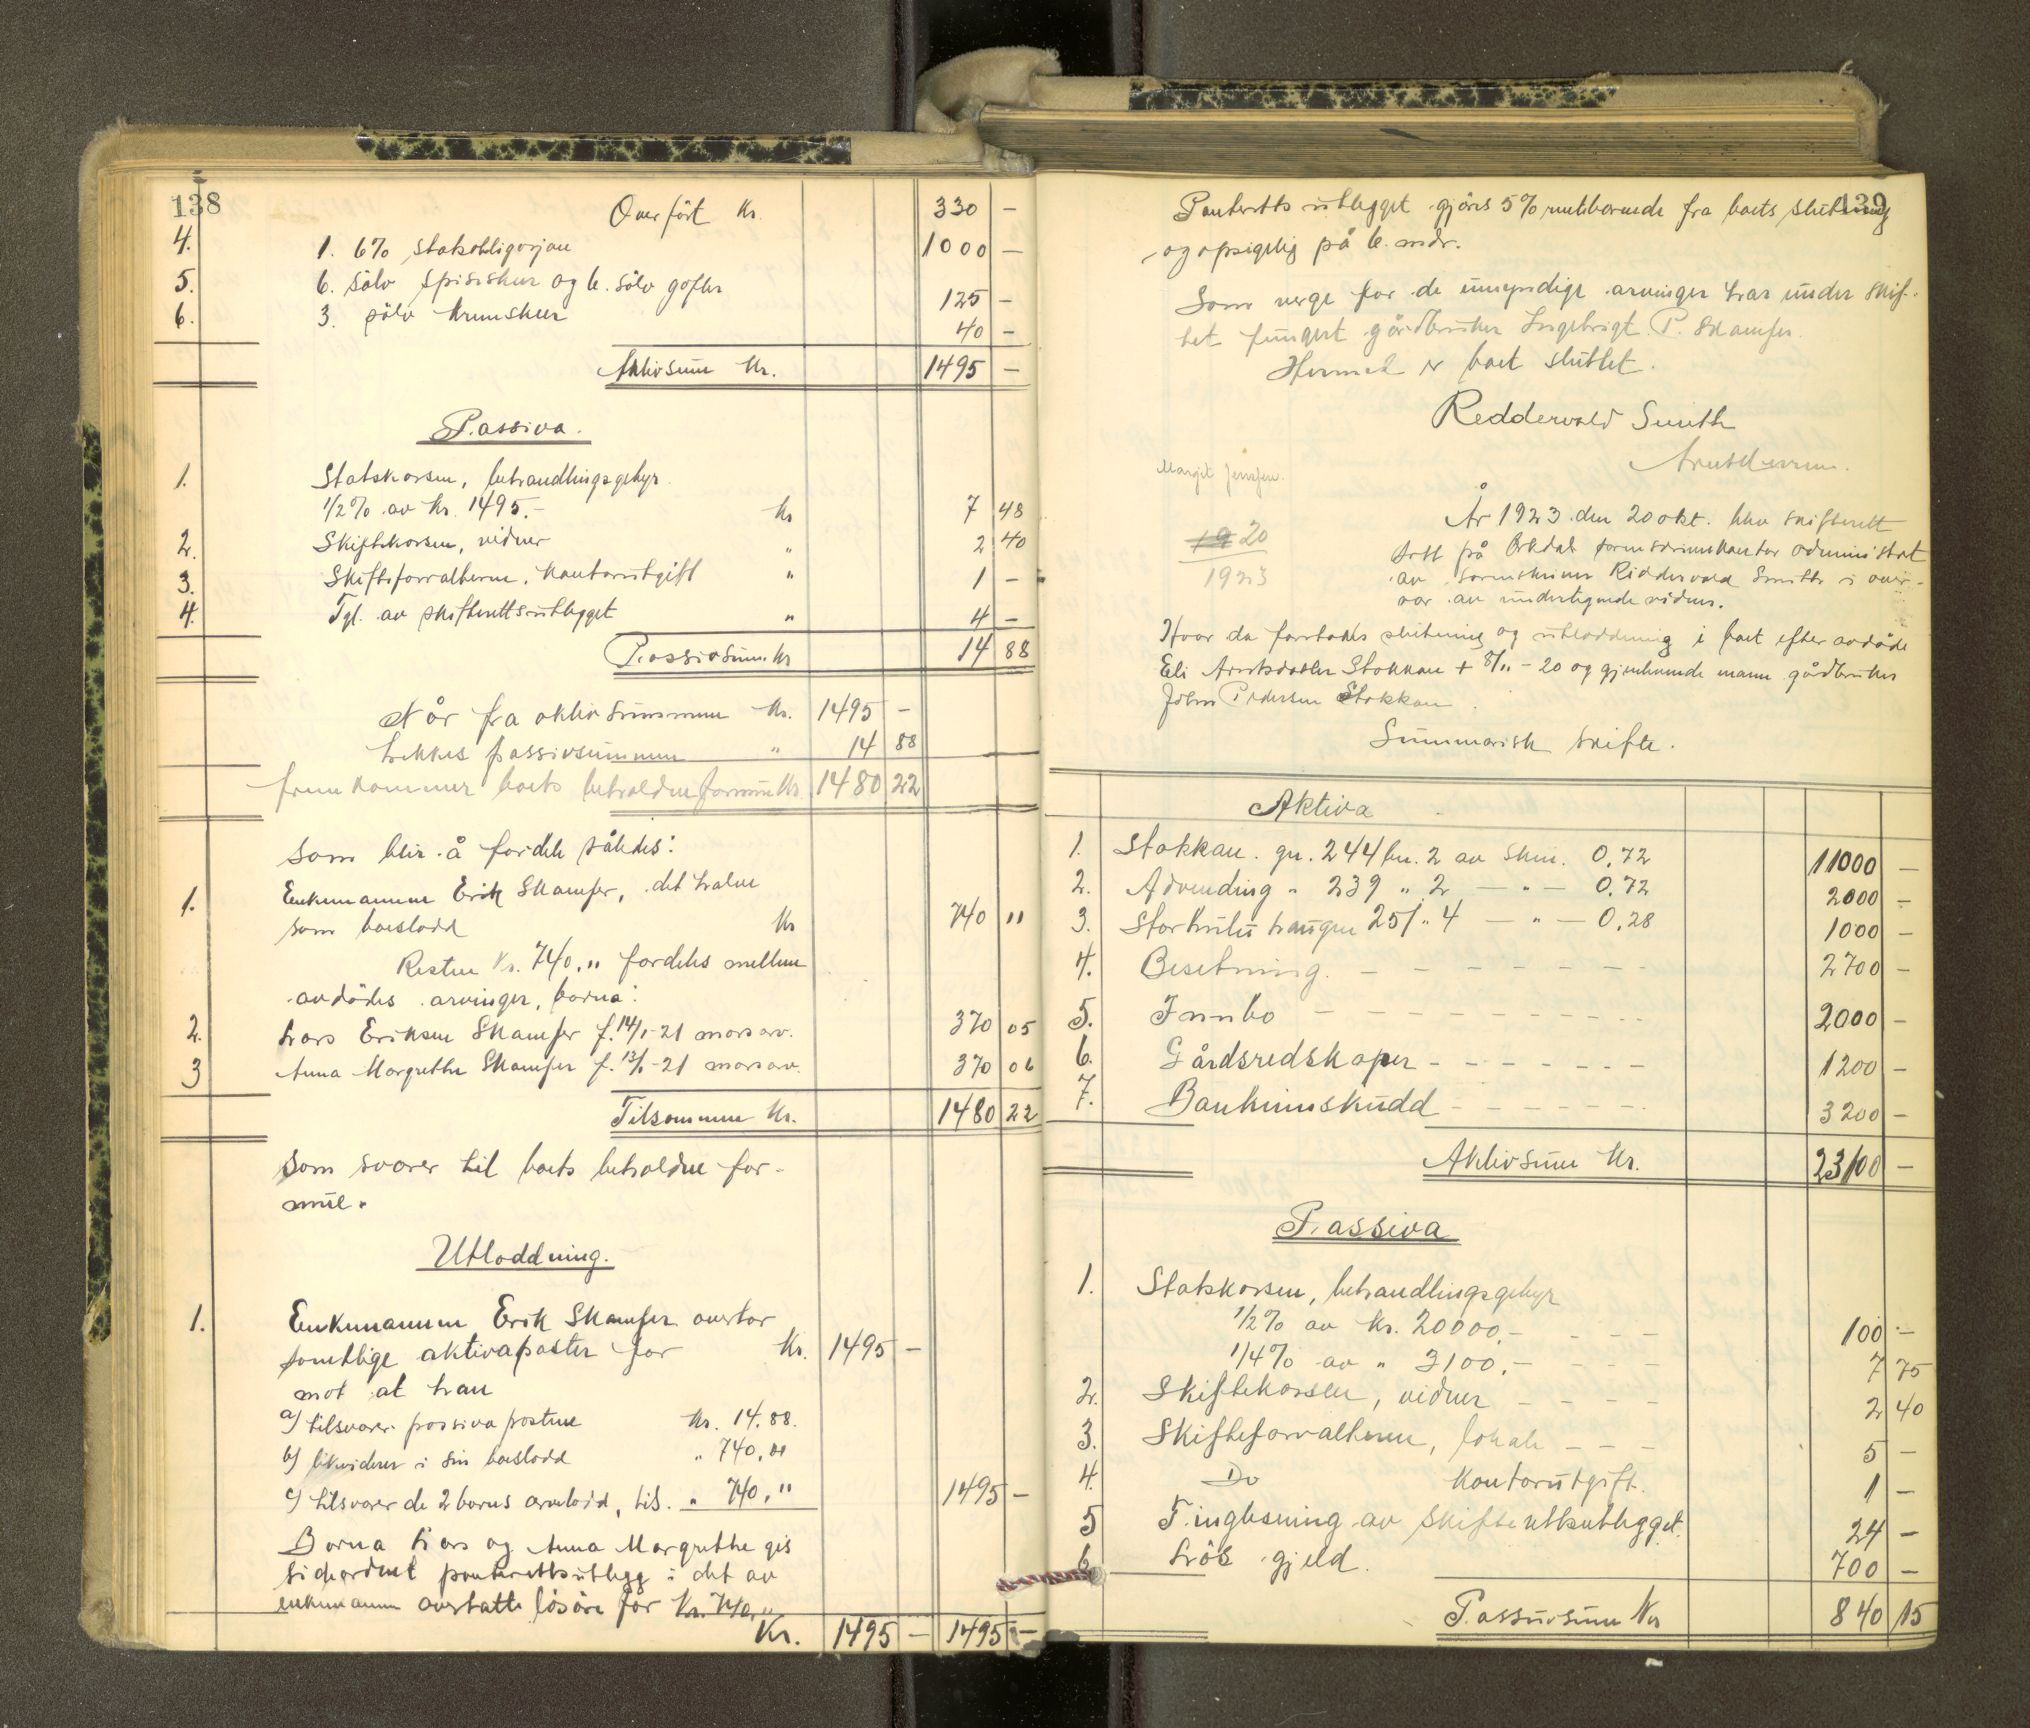 138
Overført Kr. 330 –
4. 1. 6% statsobligasjon 1000 –
5. 6. sølv spiseskeer og 6. sølv gafler 125 –
6. 3. sølv kremskeer 40 –
Aktivsum Kr. 1495 –
Passiva.
1. Statskassen, behandlingsgebyr
1/2% av Kr. 1495.- Kr 7 48
2. Skiftekassen, vidner " 2 40
3. Skifteforvalteren, kontorutgift " 1 –
4. Tgl. av skifterettsutlegget " 4 –
Passivsum Kr 14 88
Når fra aktivsummen Kr. 1495 –
trekkes passivsummen " 14 88
fremkommer boets beholdne formue Kr. 1480 22
Som blir å fordele således:
1. Enkemannen Erik Skamfer, det halve
som boslodd Kr 740 "
Resten Kr. 740." fordeles mellem
avdødes arvinger, barna:
2. Lars Eriksen Skamfer f. 14/1-21 morsarv. 370 05
3 Anna Margrethe Skamfer f. 13/1-21 morsarv. 370 06
Tilsammen Kr. 1480 22
Som svarer til boets beholdne for-
mue.
Utloddning.
1. Enkemannen Erik Skamfer overtar
samtlige aktivaposter for Kr. 1495 –
mot at han
a) tilsvarer passivapostene Kr. 14.88.
b) likviderer i sin boslodd " 740."
c) tilsvarer de 2 barns arvelodd, tils. " 740." 1495 –
Barna Lars og Anna Margrethe gis
sideordnet panterettsutlegg i det av
enkemannen overtatte løsøre for Kr. 740."
Kr. 1495 – 1495 –
139
Panteretts utlegget gjøres 5% rentebærende fra boets slutning
og opsigelig på 6. mdr.
Som verge for de umyndige arvinger har under skif-
tet fungert gårdbruker Ingebrigt P. Skamfer.
Hermed er boet sluttet.
Reddervold Smith
Margit Jenssen.
År 1923 den 20 okt. blev skifterett
20
1923
satt på Orkdal sorenskriverkontor administrert
av sorenskriver Riddervold Smith i over-
vær av undertegnede vidner.
Hvor da foretodes slutning og utloddning i boet efter avdøde
Eli Arntsdatter Stokkan + 8/11 - 20 og gjenlevende mann gårdbruker
John Pedersen Stokkan.
Summarisk skifte.
Aktiva
1. Stokkan. gn. 244 bn. 2 av skm. 0.72 11000 –
2. Advending " 239 " 2 – " – 0.72 2000 –
3. 251 " 4 – " – 0.28 1000 –
4. Besetning. 2700 –
5. Innbo 2000 –
6. Gårdsredskaper 1200 –
7. Bankinnskudd 3200 –
Aktivsum Kr. 23100 –
Passiva
1. Statskassen, behandlingsgebyr
1/2% av Kr. 20000.- 100 –
1/4% av " 3100.- 7 75
2. Skiftekassen, vidner 2 40
3. Skifteforvalteren, lokale 5 –
4. Do Kontorutgift. 1 –
5 Tinglesning av skifterettsutlegget. 24 –
6. Løs gjeld. 700 –
Passivsum Kr 840 15